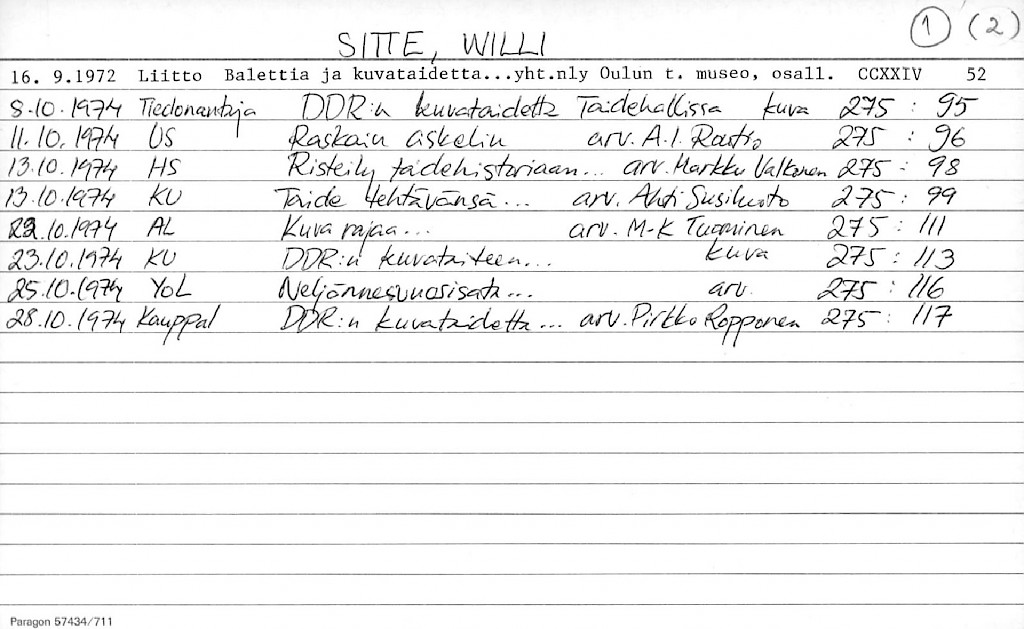 1 (2)
SITTE, WILLI
16. 9.1972 Liitto Balettia ja kuvataidetta...yht.nly Oulun t. museo, osall. CCXXIV 52
8.10.1974 Tiedonantaja DDR:n kuvataidetta Taidehallissa kuva 275 : 95
11.10.1974 US Raskain askelin arv. A.I. Routio 275 : 96
13.10.1974 HS Risteily taidehistoriaan... arv. Markku Valkonen 275 : 98
13.10.1974 KU Taide tehtävänsä... arv. Ahti Susiluoto 275 : 99
22.10.1974 AL Kuva rajaa... arv. M-K Tuominen 275 : 111
23.10.1974 KU DDR:n kuvataiteen... kuva 275 : 113
25.10.1974 YoL Neljännesvuosisata... arv. 275 : 116
28.10.1974 Kauppal DDR:n kuvataidetta... arv. Pirkko Ropponen 275 : 117
Paragon 57434/711